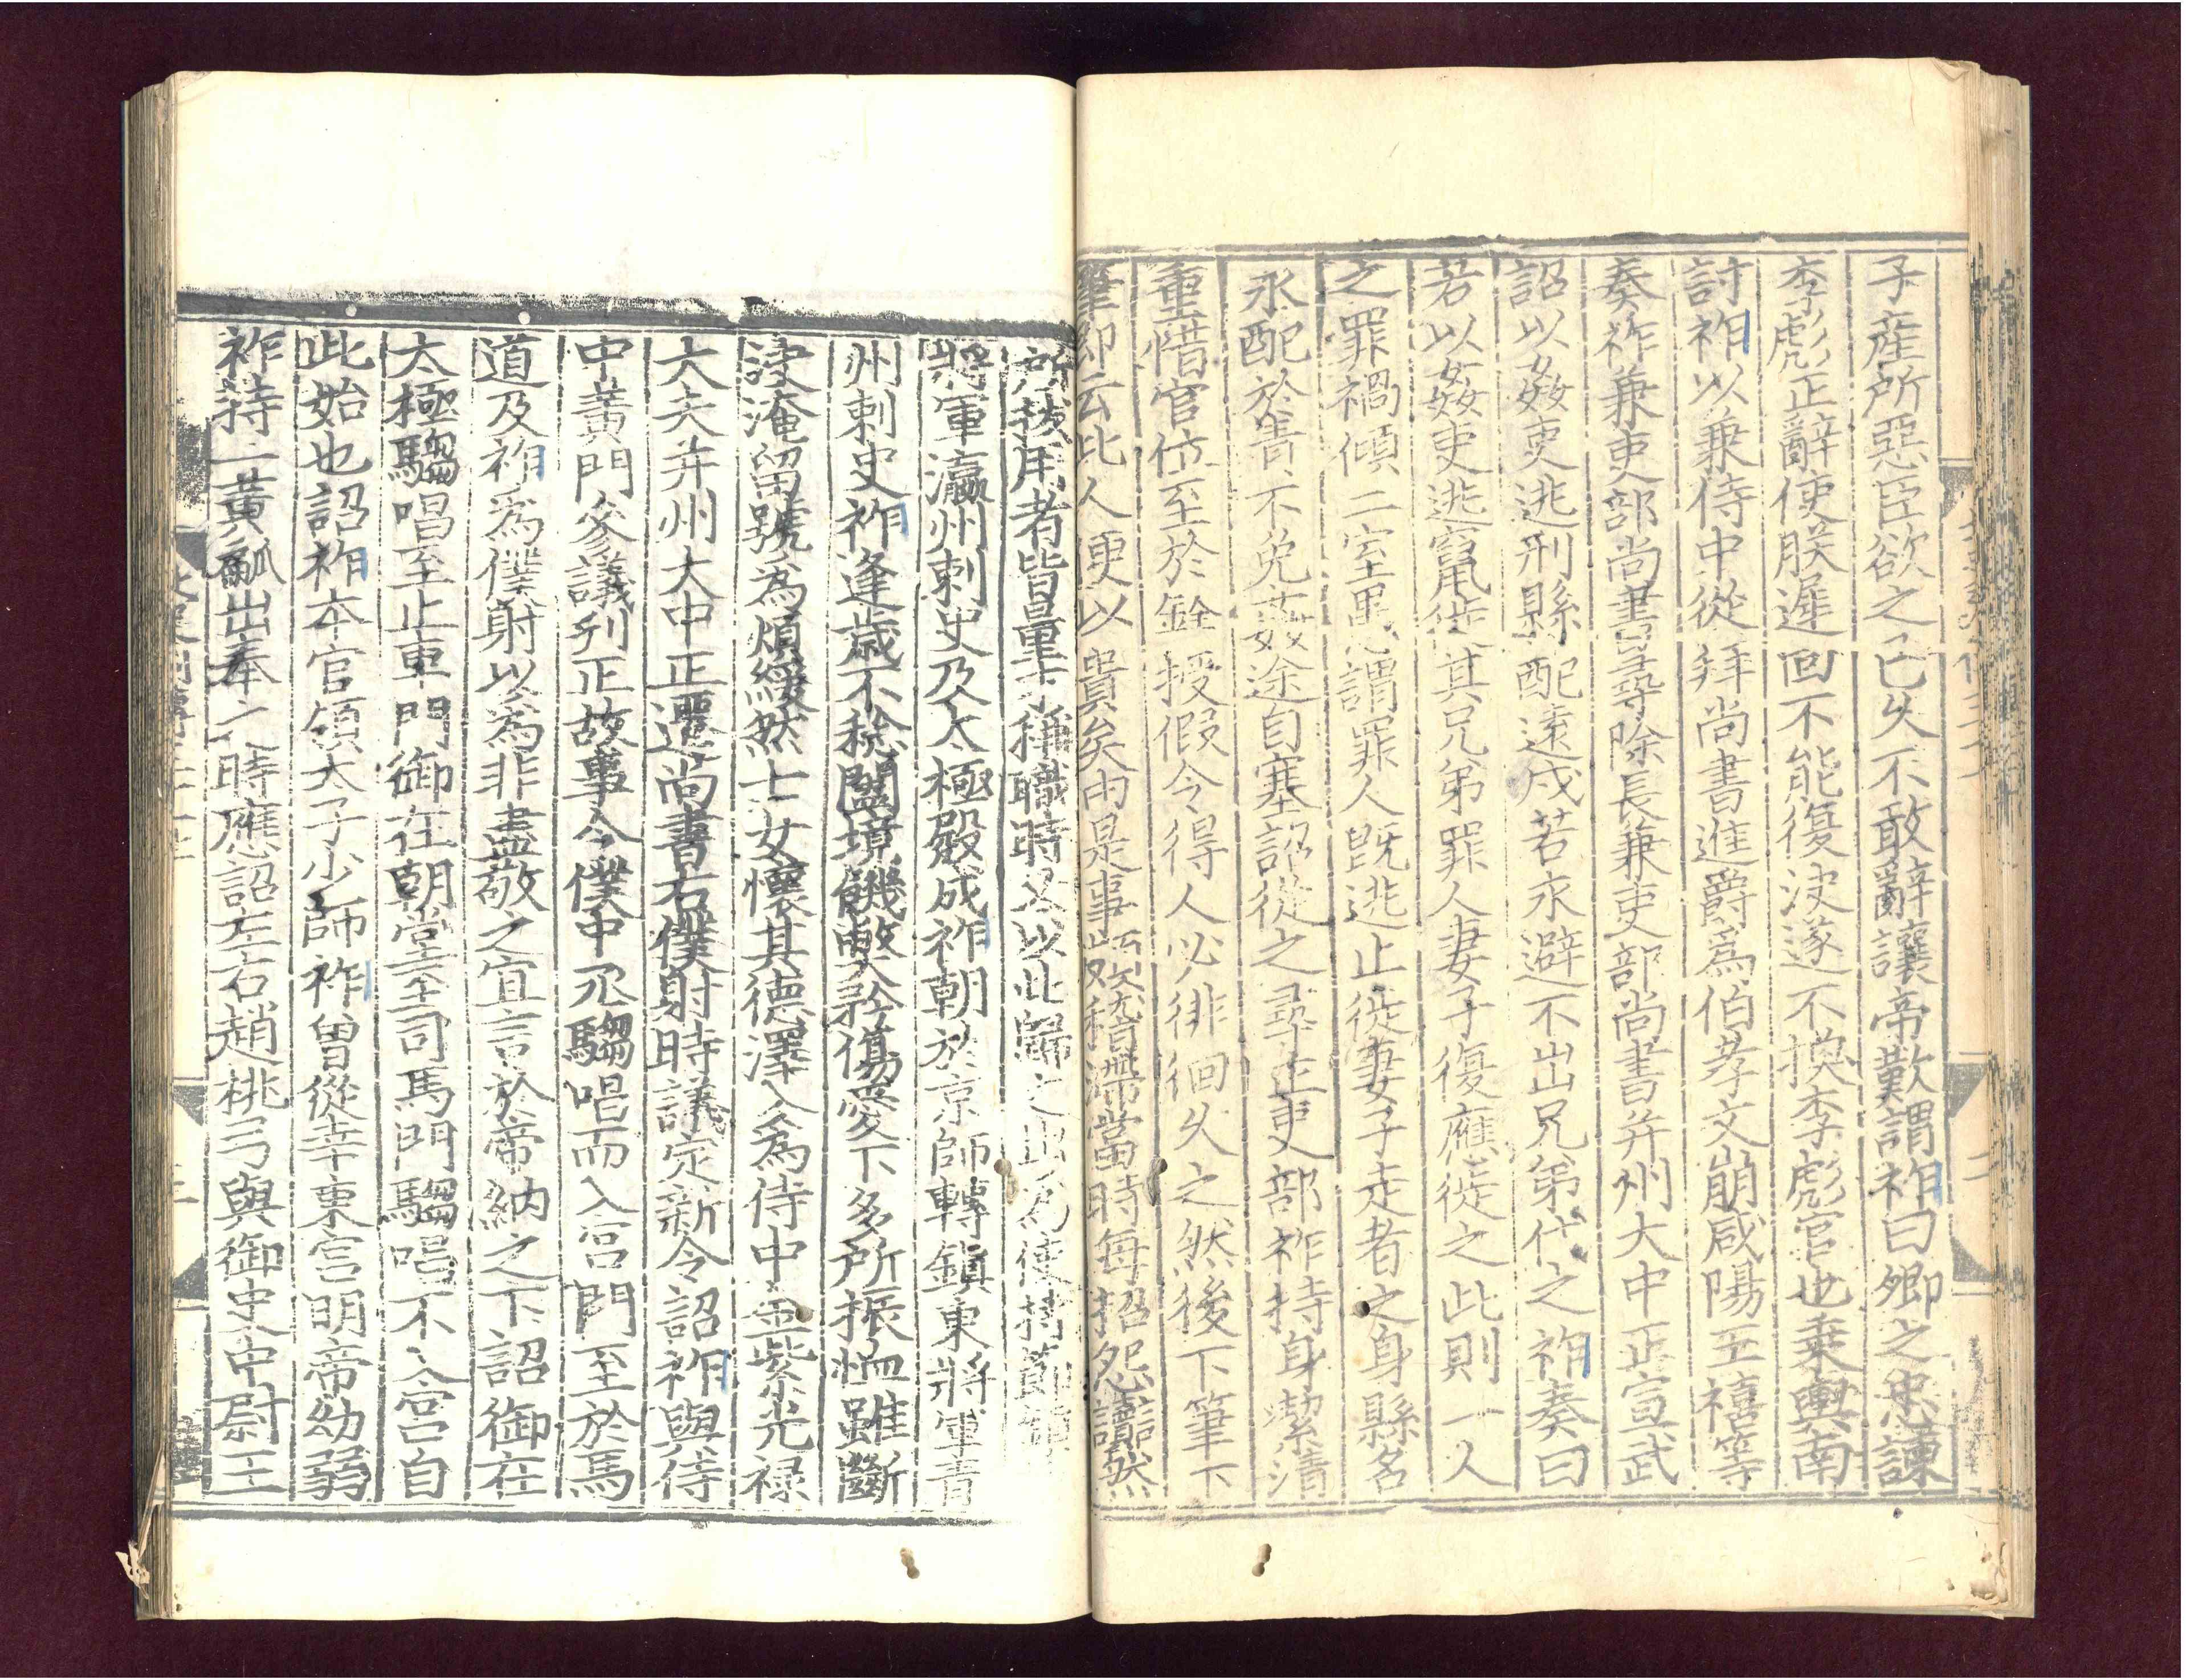 子產所惡臣欲之已久不敢辭讓帝歎謂祚曰卿之忠諫
李彪正辭使朕遲回不能復決遂不換李彪官也乗輿南
討祚以兼侍中從拜尚書進爵爲伯孝文崩咸陽王禧等
奏祚兼吏部尚書尋除長兼吏部尚書并州大中正宣武
詔以姦吏逃刑縣配遠戍若永避不出兄弟代之祚奏曰
若以姦吏逃竄徙其兄弟罪人妻子復應徙之此則一人
之罪禍傾二室愚謂罪人旣逃止徙妻子走者之身縣名
永配於眚不免姦途自塞詔從之尋正吏部祚持身潔清
重惜官位至於銓授假令得人必徘徊久之然後下筆下
筆即云此人便以貴矣由是事頗稽滯當時每招怨讟然
所拔用者皆量才稱職時又以此歸之出爲使持節鎮
將軍瀛州刺史及太極殿成祚朝於京師轉鎭東將軍青
州刺史祚逢歳不稔闔境饑弊矜傷愛下多所振恤雖斷
決淹留號爲煩緩然士女懷其德澤入爲侍中金紫光禄
大夫并州大中正遷尚書右僕射時議定新令詔祚與侍
中黄門參議刋正故事令僕中丞騶唱而入宮門至於馬
道及祚爲僕射以爲非盡敬之宜言於帝納之下詔御在
太極騶唱至止車門御在朝堂至司馬門騶唱不入宮自
此始也詔祚本官領太子少師祚曽從幸東宮明帝幼弱
祚持一黄㼐出奉之時應詔左右趙桃弓與御史中尉王